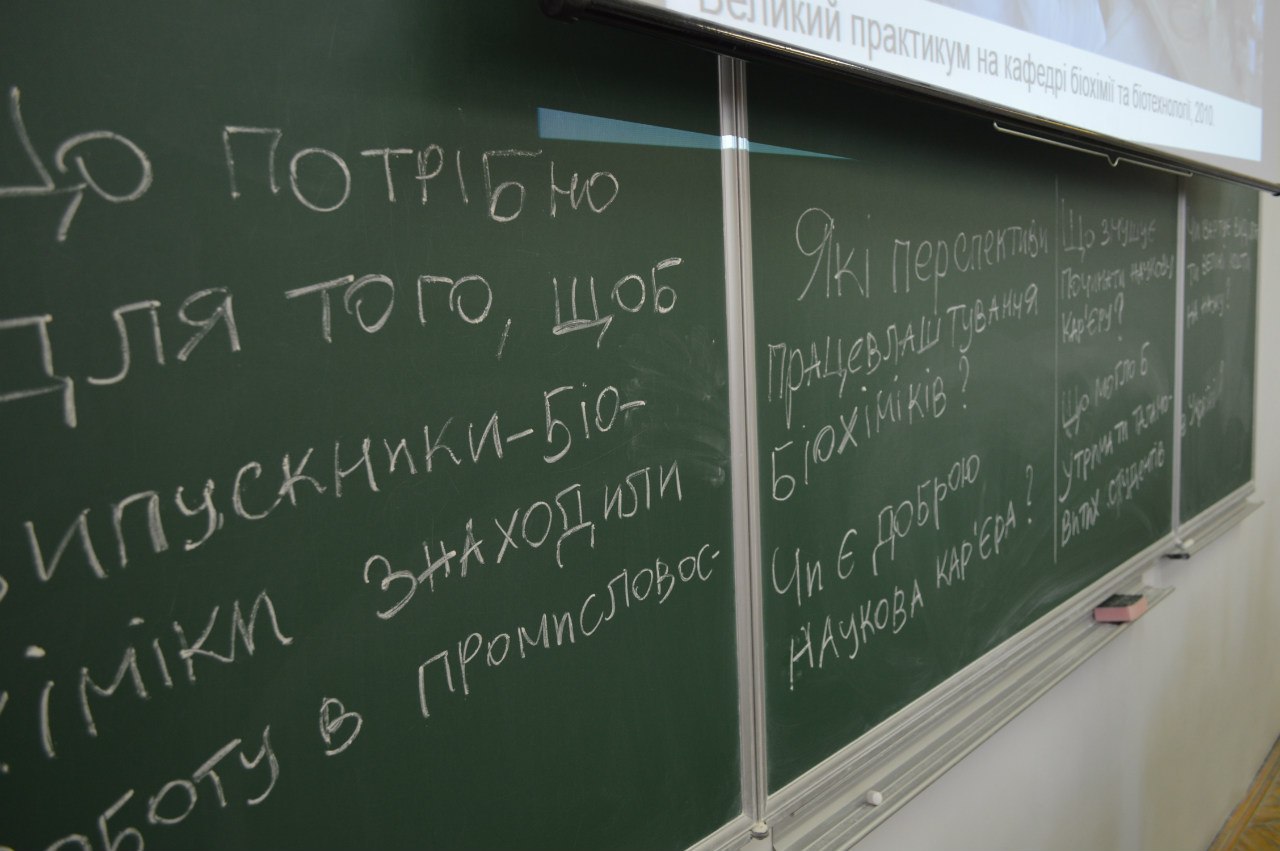 Великий практикум на кафедрі біохімії та біотехнології, 2010
Що потрібно
для того, щоб
випускники-біо-
хіміки знаходили
роботу в промисловос-
Які перспективи
працевлаштування
біохіміків?
Чи є доброю
наукова кар'єра?
Що змушує
починати наукову
кар'єру?
Що могло б
утримати талано-
витих студентів
Чи вартує
та
на науку!
в Україні?